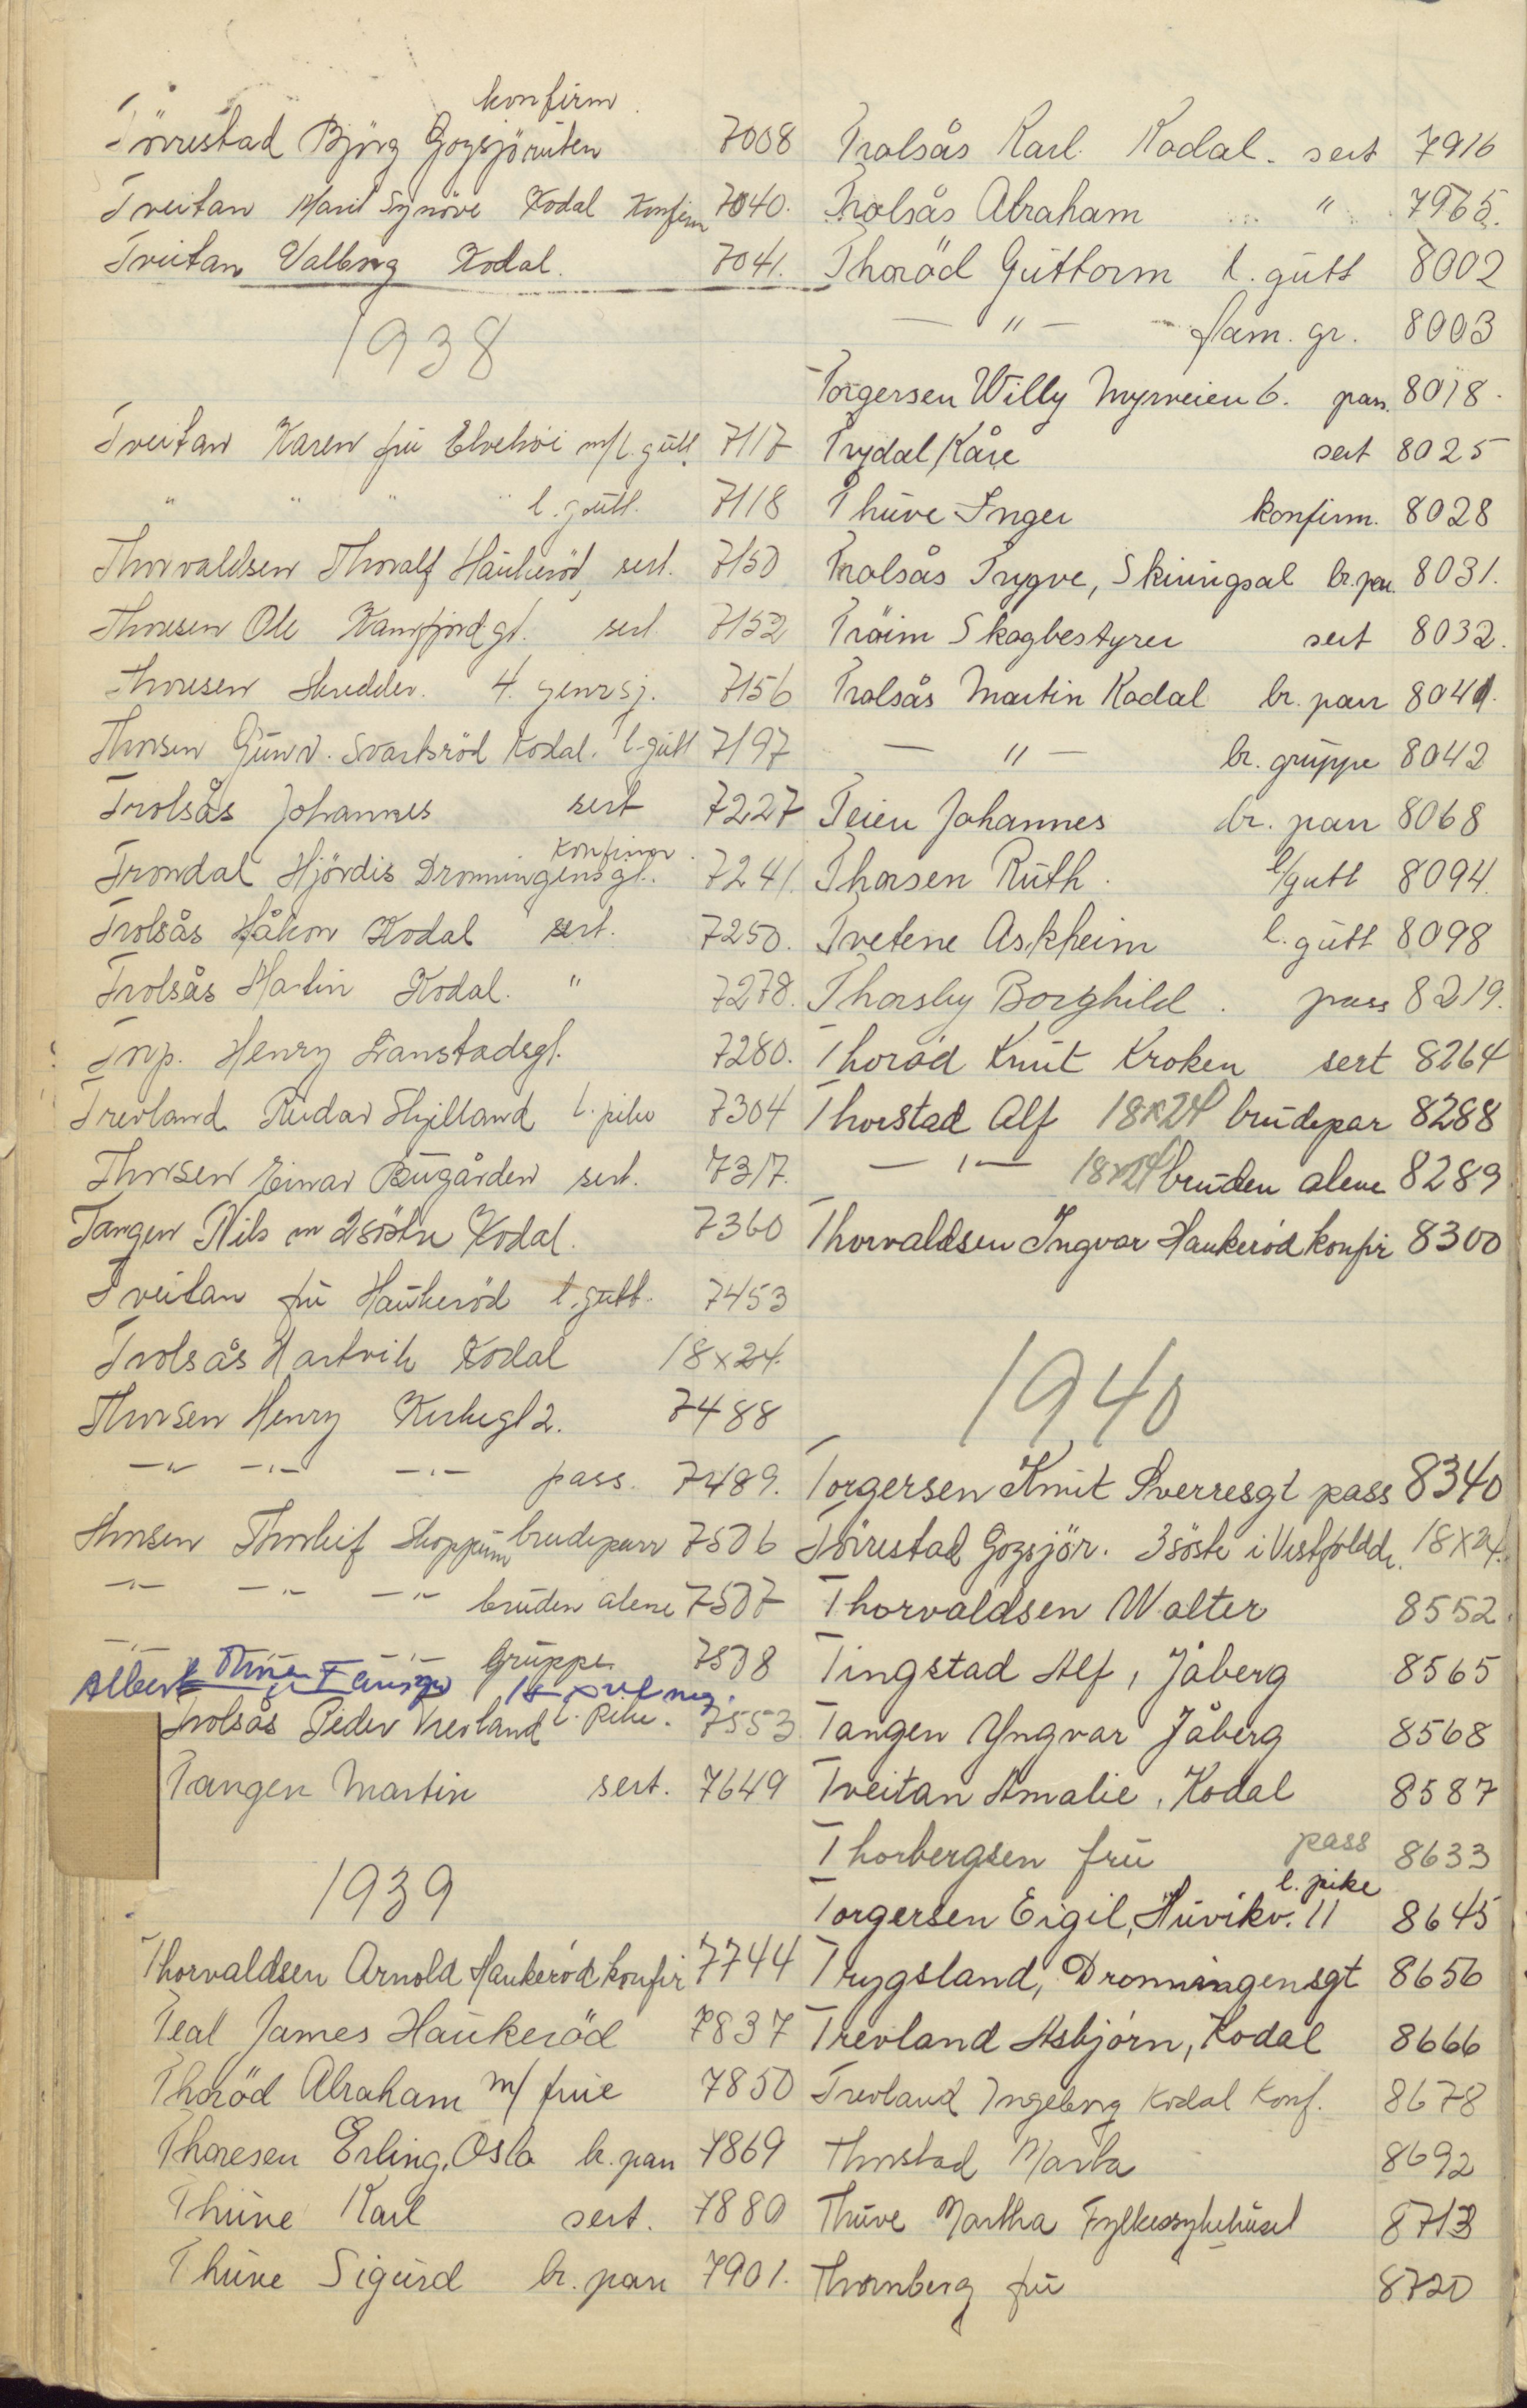 konfirm.
Törrestad Björg Gogsjöruten 7008
Tveitan Marit Synöve Kodal Konfirm 7040.
Tveitan Valborg Kodal. 7041.
1938
Tveitan Karen fru Elvehöi m/l. gutt. 7117
" " " " l. gutt. 7118
Thorvaldsen Thoralf Haukeröd, sert. 7150
Thoresen Ole Kamfjordgt. sert 7152
Thoresen Skredder. 4. gensj. 7156
Thorsen Gunv. Svartsröd Kodal. l. gutt 7197
Trolsås Johannes sert 7227
Konfirm.
Trondal Hjördis Dronningensgt. 7241.
Trolsås Håkon Kodal sert. 7250.
Trolsås Martin Kodal. " 7278.
Trip. Henry Lanstadsgt. 7280.
Trevland Reidar Skjelland l. pike 7304
Thorsen Einar Bugården sert. 7317.
Tangen Nils m 2 söstre Kodal. 7360
Tveitan fru Haukeröd l. gutt. 7453
Trolsås Hartvik Kodal 18x24.
Thorsen Henry Kirkegt 2. 7488
—"— —"— —"— pass. 7489.
Thorsen Thorleif Skoppum brudeparr 7506
—"— —"— —"— bruden alene 7507
—"— —"— Gruppe 7508
Albert
Trolsås Peder Trevland l. Pike. 7553
Tangen Martin sert. 7649
1939
Thorvaldsen Arnold Haukeröd konfir 7744
Teal James Haukeröd 7837
Thoröd Abraham m/ frue 7850
Thoresen Erling, Oslo br. parr 7869
Thune Karl sert. 7880
Thune Sigurd br. parr 7901.
Trolsås Karl. Kodal. sert 7916
Trolsås Abraham " 7965.
Thoröd Guttorm l. gutt 8002
— " — fam. gr. 8003
Torgersen Willy Myrveien 6. pass. 8018.
Trydal Kåre sert 8025
Thuve Inger konfirm. 8028
Trolsås Trygve, Skiringsal br. par. 8031.
Tröim Skogbestyrer sert 8032.
Trolsås Martin Kodal br. parr 8041.
— " — br. gruppe 8042
Teien Johannes br. parr 8068
Thorsen Ruth. l/gutt 8094.
Tvetene Askheim l. gutt 8098
Thorsby Borghild. pass 8219.
Thoröd Knut Kroken sert 8264
Thorstad Alf 18x24 brudepar 8288
— " — 18x24 bruden alene 8289
Thorvaldsen Ingvar Haukeröd konfir 8300
1940
Torgersen Knut Sverresgt pass 8340
Törrestad Gogsjör. 3 söstre i Vestfolddr. 18x24.
Thorvaldsen Walter 8552.
Tingstad Alf, Jåberg 8565
Tangen Yngvar Jåberg 8568
Tveitan Amalie, Kodal 8587
Thorbergsen fru pass 8633
l. pike
Torgersen Eigil, Huvikv. 11 8645
Trygsland, Dronningensgt 8656
Trevland Asbjörn, Kodal 8666
Trevland Ingeborg Kodal Konf. 8678
Thorstad Marta 8692
Thuve Martha Fylkessykehuset 8713
Thornberg fru 8720